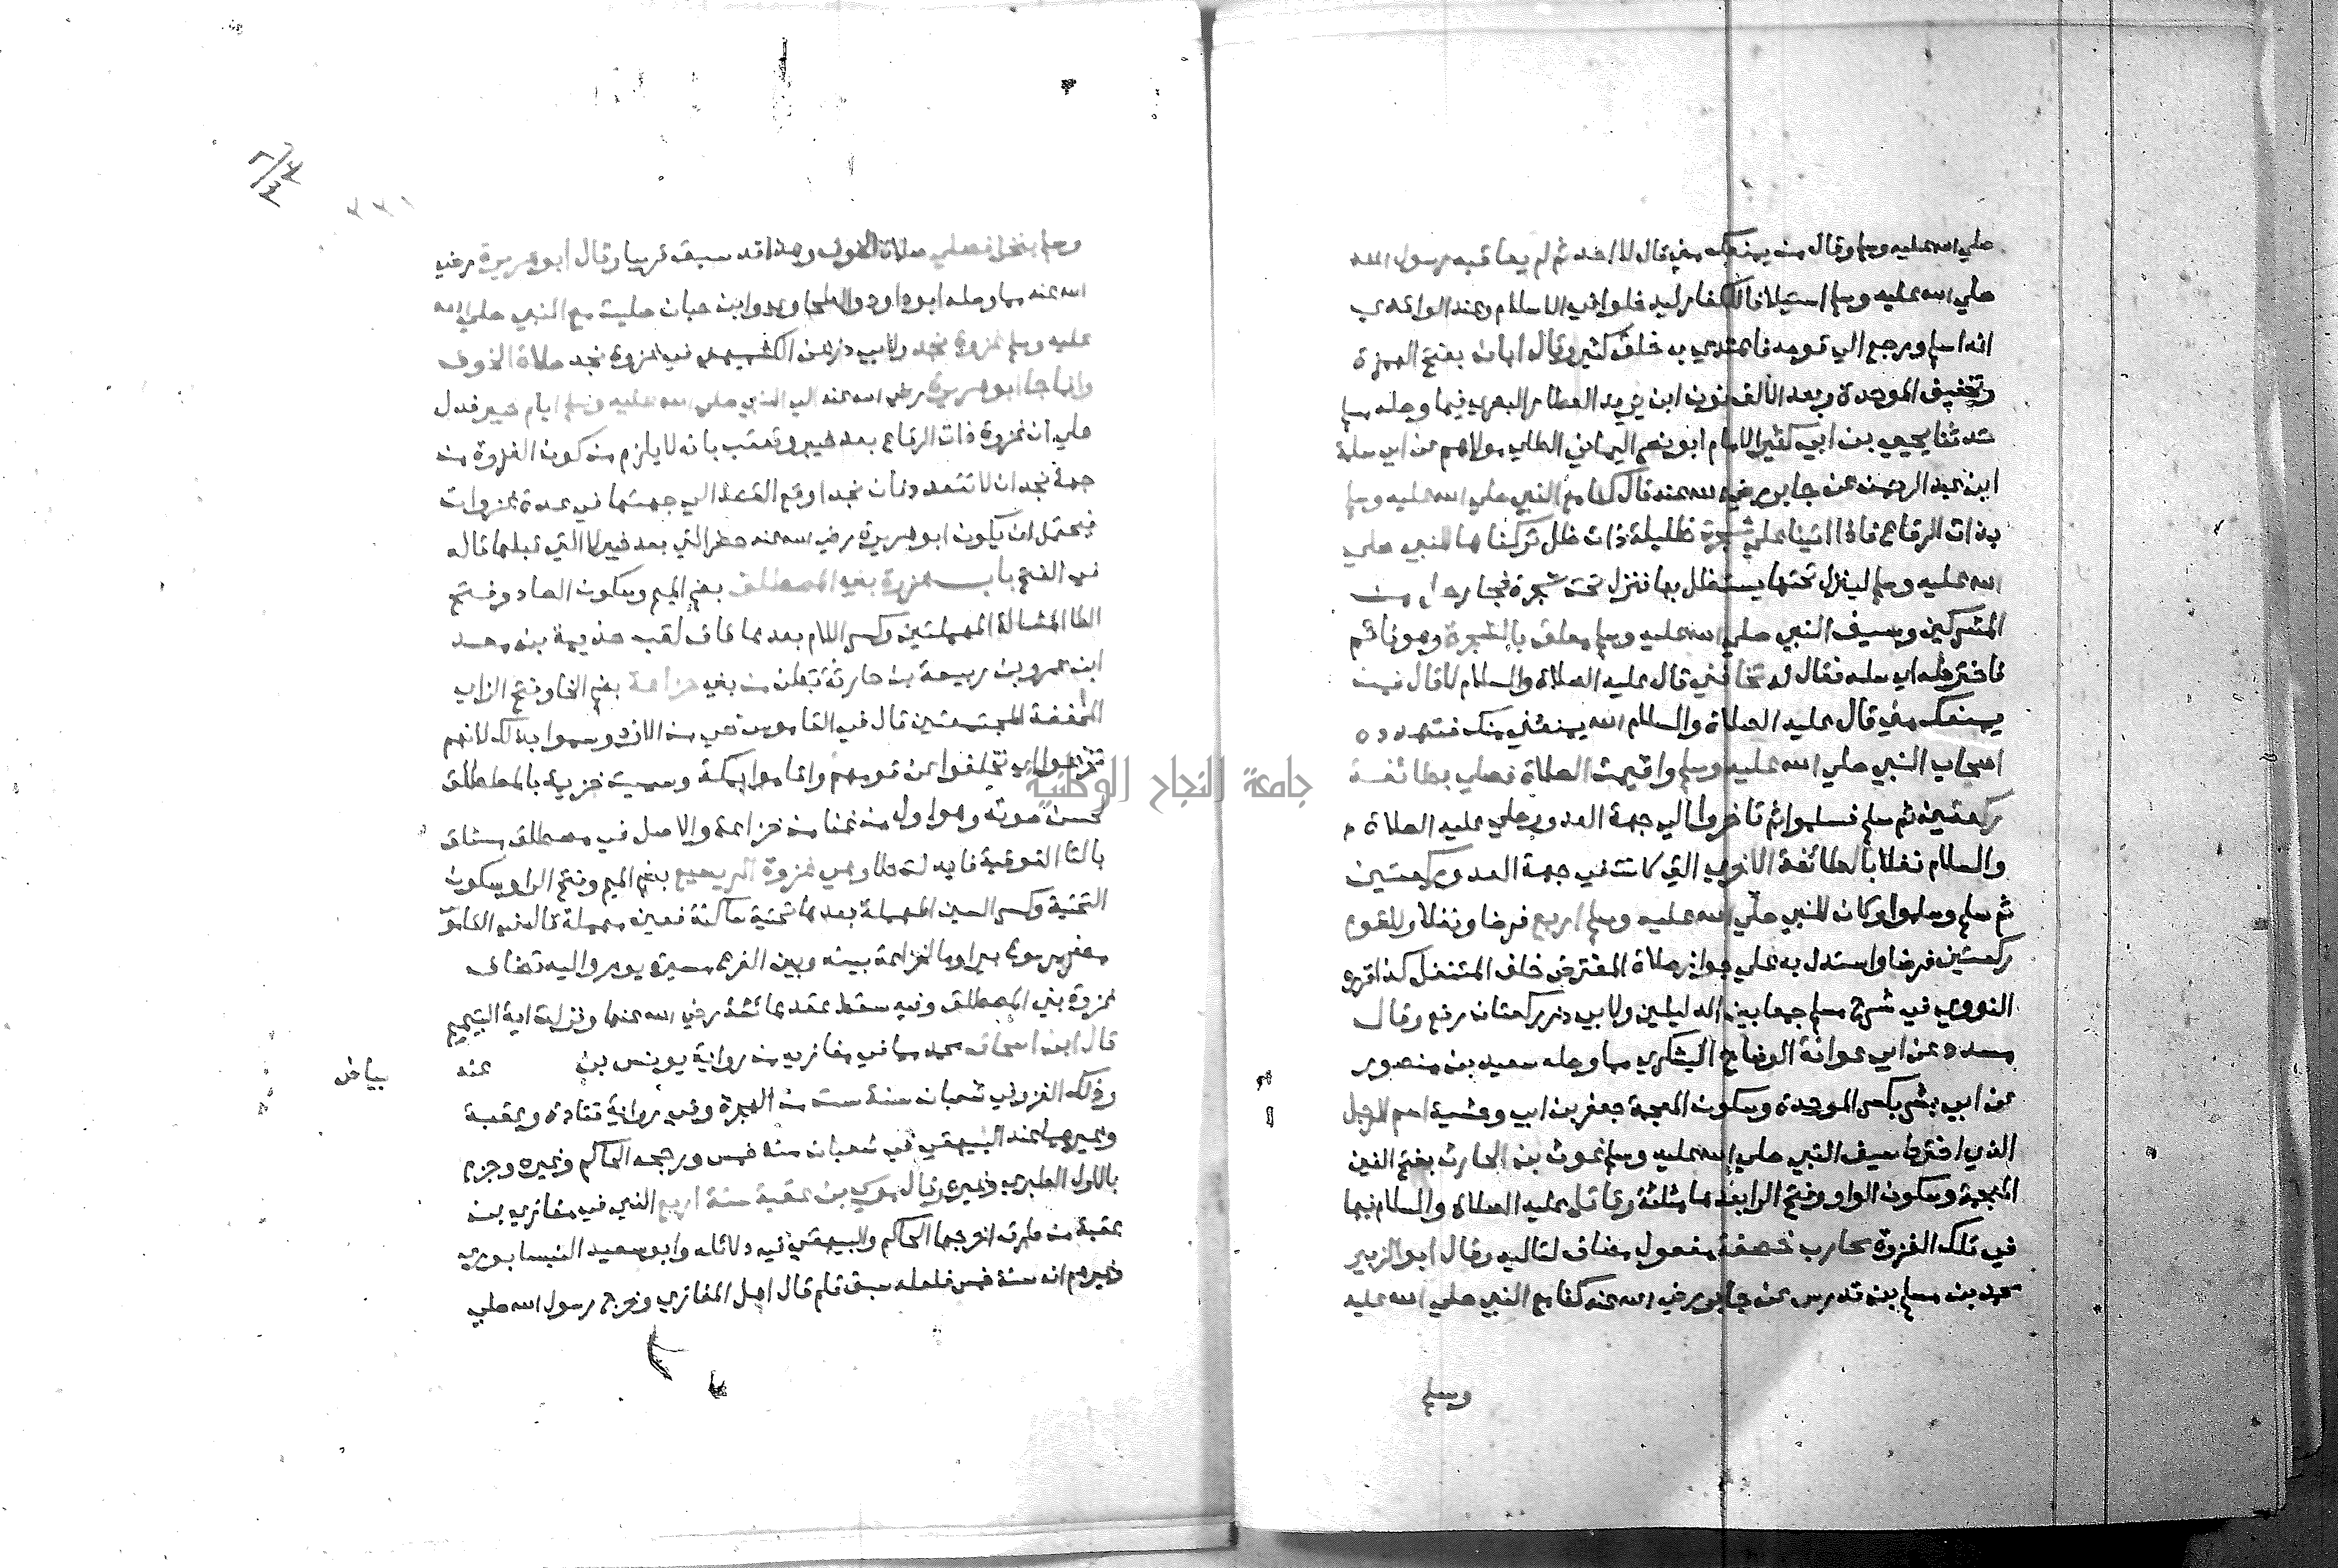 صلي الله عليه وسلم وقال من يمنعك مني قال لا احد ثم لم يعاقبه رسول الله
صلي الله عليه وسلم استيلافا للكفار ليدخلوا في الاسلام وعند الواقدي
انه اسلم ورجع الي قومه فاهتدي به خلق كثير وقال ابان بفتح الهمزة
وتخفيف الموحدة وبعد الألف نون ابن يزيد العطار البصري فيما وصله مسلم
حدثنا يحيي بن ابي كثير الامام ابو نصر اليماني الطاي مولاهم عن ابي سلمة
ابن عبد الرحمن عن جابر رضي الله عنه قال كنا مع النبي صلي الله عليه وسلم
بذات الرقاع فاذا اتينا علي شجرة ظليلة ذات ظل تركناها للنبي صلي
الله عليه وسلم لينزل تحتها يستظل بها فنزل تحت شجرة فجا رجل من
المشركين وسيف النبي صلي الله عليه وسلم معلق بالشجرة وهو نائم
فاخترطه اي سله فقال له تخافني قال عليه الصلاة والسلام لا قال فمن
يمنعك مني قال عليه الصلاة والسلام الله يمنعني منك فتهدده
اصحاب النبي صلي الله عليه وسلم واقيمت الصلاة فصلي بطائفة
ركعتين ثم سلم فسلموا ثم تاخروا الي جهة العدو وصلي عليه الصلاة
والسلام نفلا بالطائفة الاخري التي كانت في جهة العدو ركعتين
ثم سلم وسلموا وكان للنبي صلي الله عليه وسلم اربع فرضا ونفلا وللقوم
ركعتين فرضا واستدل به علي جواز صلاة المفترض خلف المتنفل كذا قرره
النووي في شرح مسلم جمعا بين الدليلين ولابي ذر ركعتان رفع وقال
مسدد عن ابي عوانة الوضاح اليشكري مما وصله سعيد بن منصور
عن ابي بشر بكسر الموحدة وسكون المعجمة جعفر بن ابي وحشية اسم الرجل
الذي اخترط سيف النبي صلي الله عليه وسلم غورث بن الحارث بفتح الغين
المعجمة وسكون الواو وفتح الرا بعدها مثلثة وقاتل عليه الصلاة والسلام فيها
في تلك الغزوة محارب خصفة مفعول مضاف لتاليه وقال ابو الزبير
محمد بن مسلم بن تدرس عن جابر رضي الله عنه كنا مع النبي صلي الله عليه
وسلم
٣٣١
وسلم بنخل فصلي صلاة الخوف وهذا قد سبق قريبا وقال ابو هريرة رضي
الله عنه مما وصله ابو داود والطحاوي وابن حبان صليت مع النبي صلي الله
عليه وسلم غزوة نجد ولابي ذر عن الكشميهني في غزوة نجد صلاة الخوف
وانما جا ابو هريرة رضي الله عنه الي النبي صلي الله عليه وسلم ايام خيبر فدل
علي ان غزوة ذات الرقاع بعد خيبر وتعقب بانه لا يلزم من كون الغزوة من
جهة نجد ان لا تتعدد فان نجدا وقع القصد الي جهتها في عدة غزوات
فيحتمل ان يكون ابو هريرة رضي الله عنه حضر التي بعد خيبر لا التي قبلها قاله
في الفتح باب غزوة بني المصطلق بضم الميم وسكون الصاد وفتح
الطا المشالة المهملتين وكسر اللام بعدها قاف لقب جذيمة بن سعد
ابن عمرو بن ربيعة بن حارثة بطن من بني خزاعة بضم الخا وفتح الزاي
المخففة المعجمتين قال في القاموس حي من الازد وسموا بذلك لانهم
تخزعوا اي تخلفوا عن قومهم واقاموا بمكة وسميت خزيمة بالمصطلق
لحسن صوته وهو اول من غنا من خزاعة والاصل في مصطلق مستلق
بالتا الفوقية فابدلت طا وهي غزوة المريسيع بضم الميم وفتح الرا وسكون
التحتية وكسر السين المهملة بعدها تحتية ساكنة فعين مهملة قال في القاموس
مصغر مرسوع بير او ما لخزاعة بينه وبين الفرع مسيرة يوم واليه تضاف
غزوة بني المصطلق وفيه سقط عقد عائشة رضي الله عنها ونزلت اية التيمم
قال ابن اسحاق محمد مما في مغازيه من رواية يونس بن عنه
بياض
وذلك الغزو في شعبان سنة ست من الهجرة وفي رواية قتادة وعقبة
وغيرهما عند البيهقي في شعبان سنة خمس ورجحه الحاكم وغيره وجزم
بالاول الطبري وغيره وقال موسي بن عقبة سنة اربع الذي في مغازي بن
عقبة من طرق اخرجها الحاكم والبيهقي في دلائله وابو سعيد النيسابوري
وغيرهم انه سنة خمس فلعله سبق قلم قال اهل المغازي وخرج رسول الله صلي
جامعة النجاح الوطنية